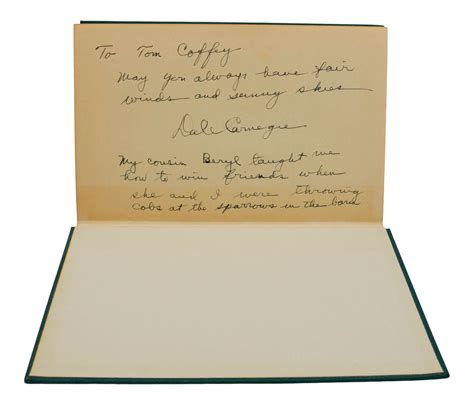 To Tom Coffey
May you always have fair
winds and sunny skies
Dale Carnegie
My cousin Beryl taught me
how to win friends when
she and I were throwing
cobs at the sparrows in the barn